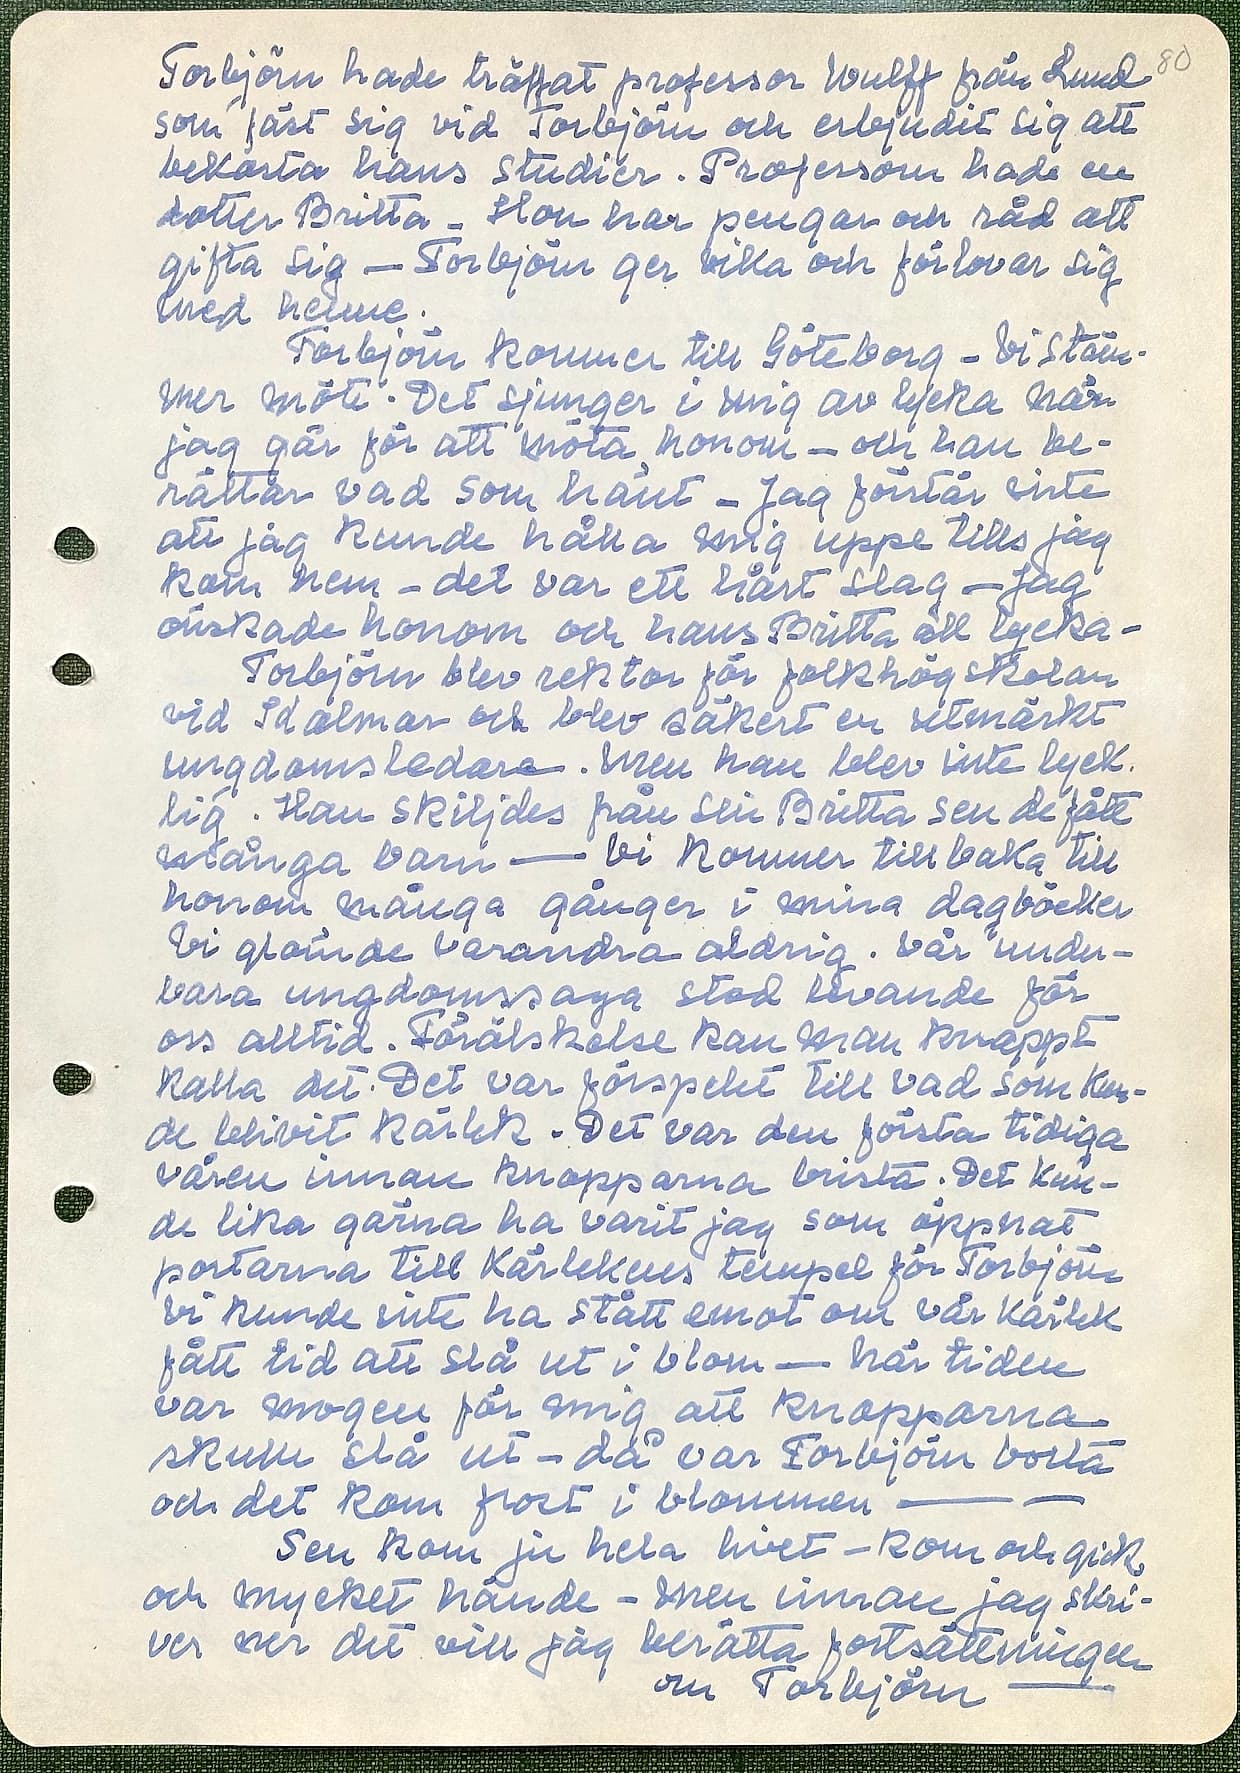 80
Torbjörn hade träffat professor Wulff från Lund
som fäst sig vid Torbjörn och erbjudit sig att
bekosta hans studier. Professorn hade en
dotter Britta – Hon har pengar och råd att
gifta sig — Torbjörn ger vika och förlovar sig
med henne.
Torbjörn kommer till Göteborg – Vi stäm-
mer möte. Det sjunger i mig av lycka när
jag går för att möta honom – och han be-
rättar vad som hänt – Jag förstår inte
att jag kunde hålla mig uppe tills jag
kom hem – det var ett hårt slag – Jag
önskade honom och hans Britta all lycka –
Torbjörn blev rektor för folkhögskolan
vid och blev säkert en utmärkt
ungdomsledare. Men han blev inte lyck.
lig. Han skiljdes från sin Britta sen de fått
många barn — Vi kommer tillbaka till
honom många gånger i mina dagböcker
Vi glömde varandra aldrig. Vår under-
bara ungdomssaga stod levande för
oss alltid. Förälskelse kan man knappt
kalla det. Det var förspelet till vad som kun-
de blivit kärlek. Det var den första tidiga
våren innan knopparna brista. Det kun-
de lika gärna ha varit jag som öppnat
portarna till Kärlekens tempel för Torbjörn
Vi kunde inte ha stått emot om vår kärlek
fått tid att slå ut i blom — när tiden
var mogen för mig att knopparna
skulle slå ut – då var Torbjörn borta
och det kom frost i blommen — —
Sen kom ju hela livet – kom och gick
och mycket hände – Men innan jag skri-
ver ner det vill jag berätta fortsättningen
om Torbjörn —